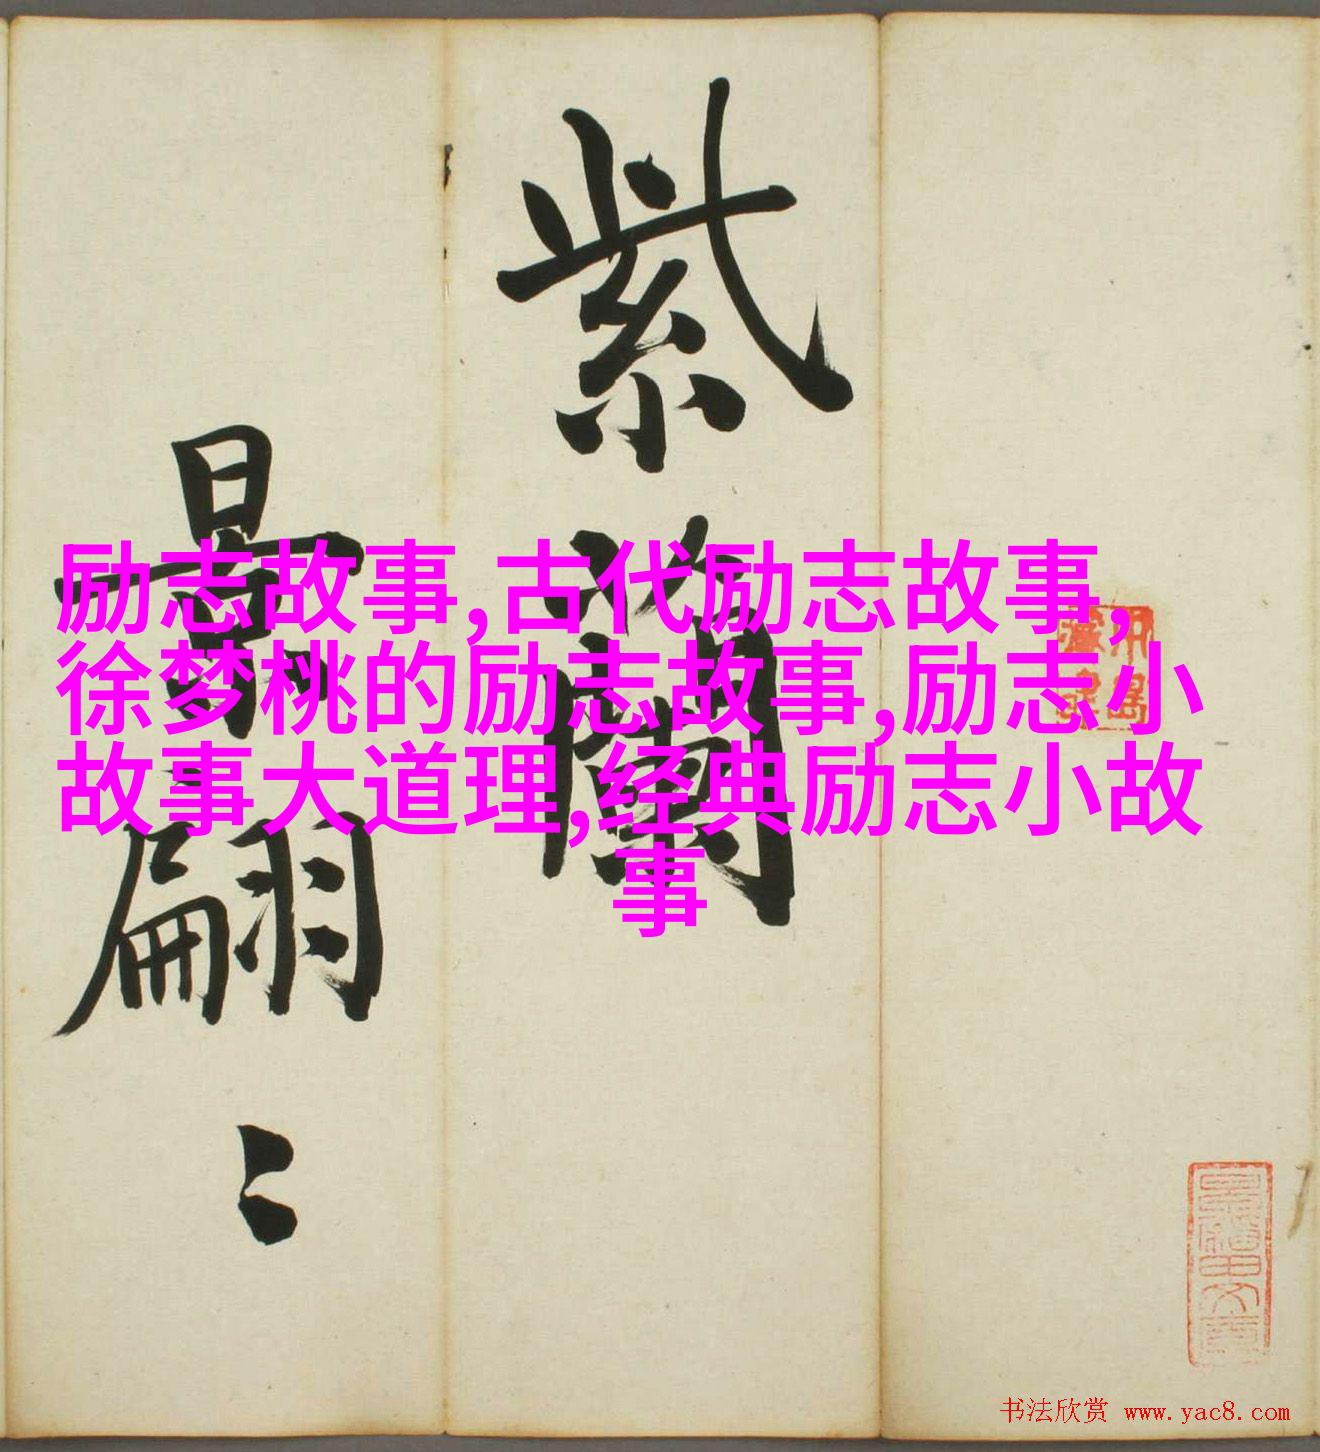 紫蘭
最翩
励志故事,古代励志故事,
徐梦桃的励志故事,励志小
故事大道理,经典励志小故
事
书法欣赏 www.yac8.com